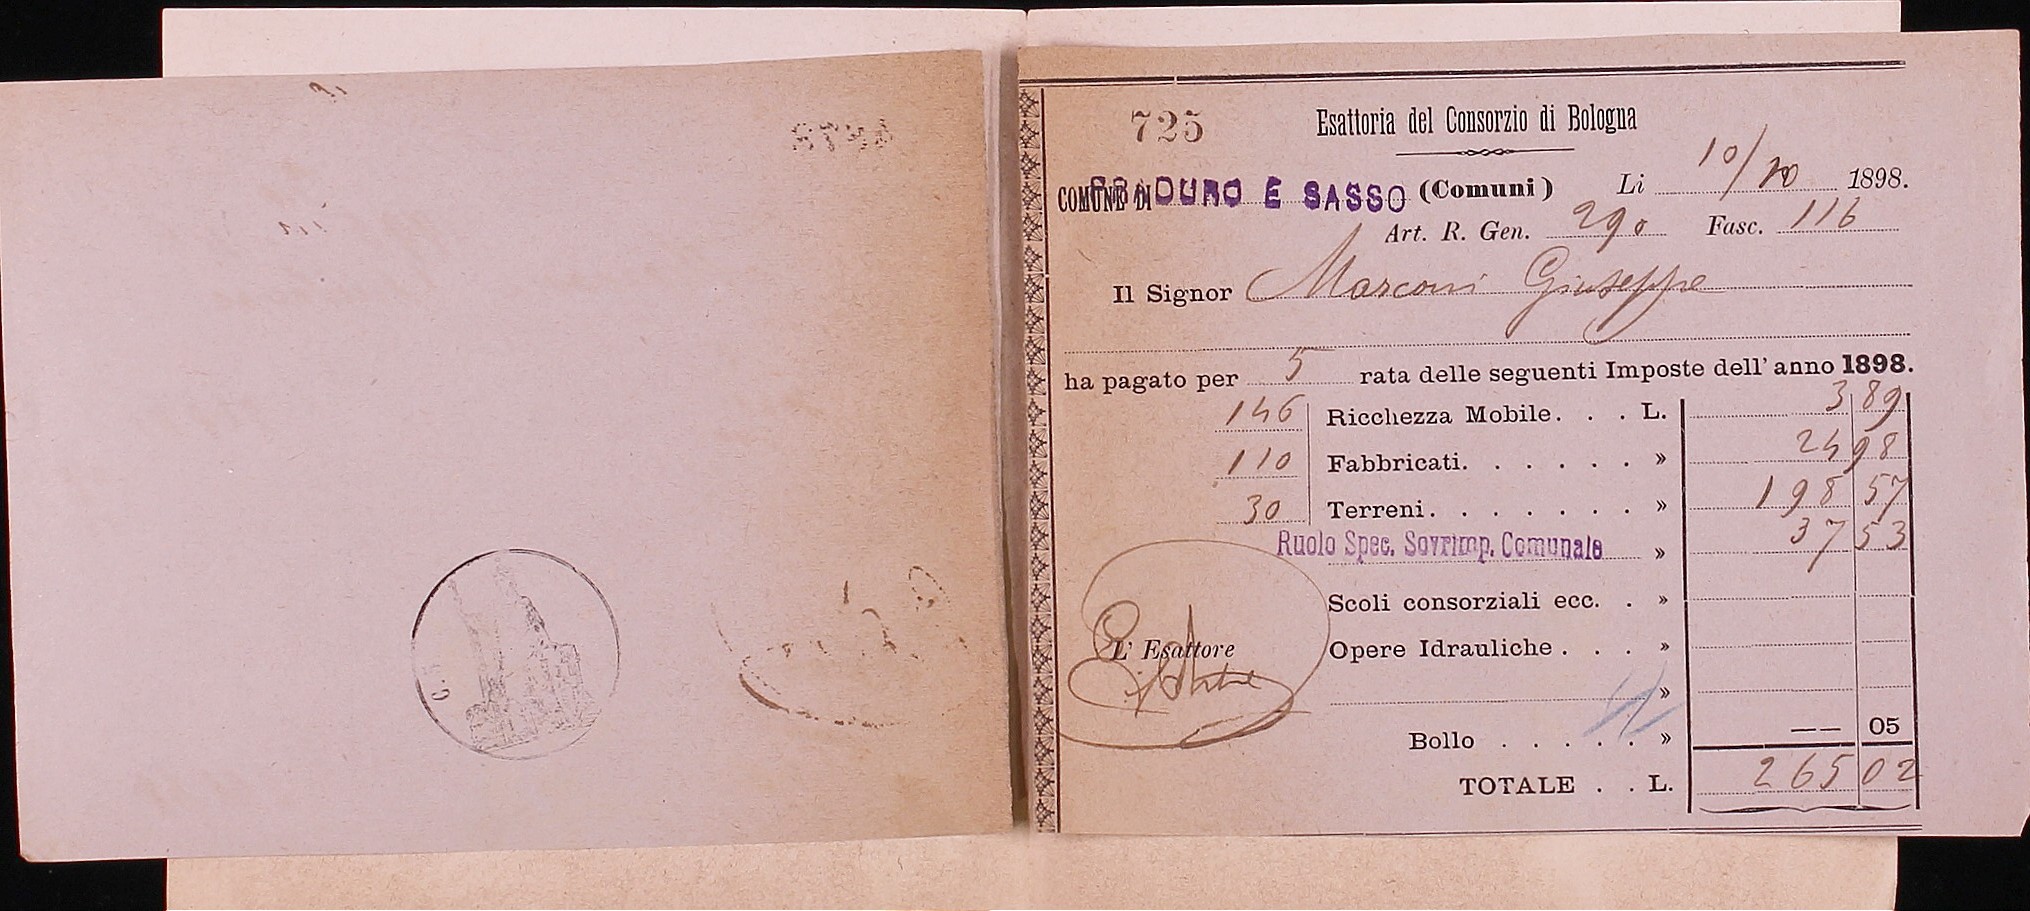 725
Esattoria del Consorzio di Bologna
COMUNE DI DURO E SASSO (Comuni) Li 10/10 1898.
Art. R. Gen. 290 Fasc. 116
Il Signor Marconi Giuseppe
ha pagato per 5 rata delle seguenti Imposte dell' anno 1898.
146 Ricchezza Mobile. . . L. 3 89
110 Fabbricati. . . . . . » 24 98
30 Terreni. . . . . . . » 198 57
Ruolo Spec. Sovrimp. Comunale » 37 53
Scoli consorziali ecc. . »
L' Esattore
Opere Idrauliche . . . »
»
Bollo . . . . . » — — 05
TOTALE . . L. 265 02